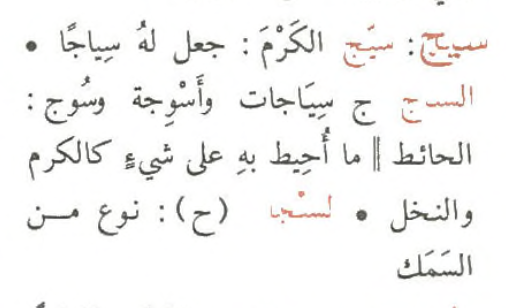 سيج: سيّج الكَرْمَ: جعل لهُ سِياجًا •
ج سِيَاجات وأَسْوِجة وسُوج:
الحائط ‖ ما أُحِيط بهِ على شيءٍ كالكرم
والنخل • (ح): نوع من
السَمَك